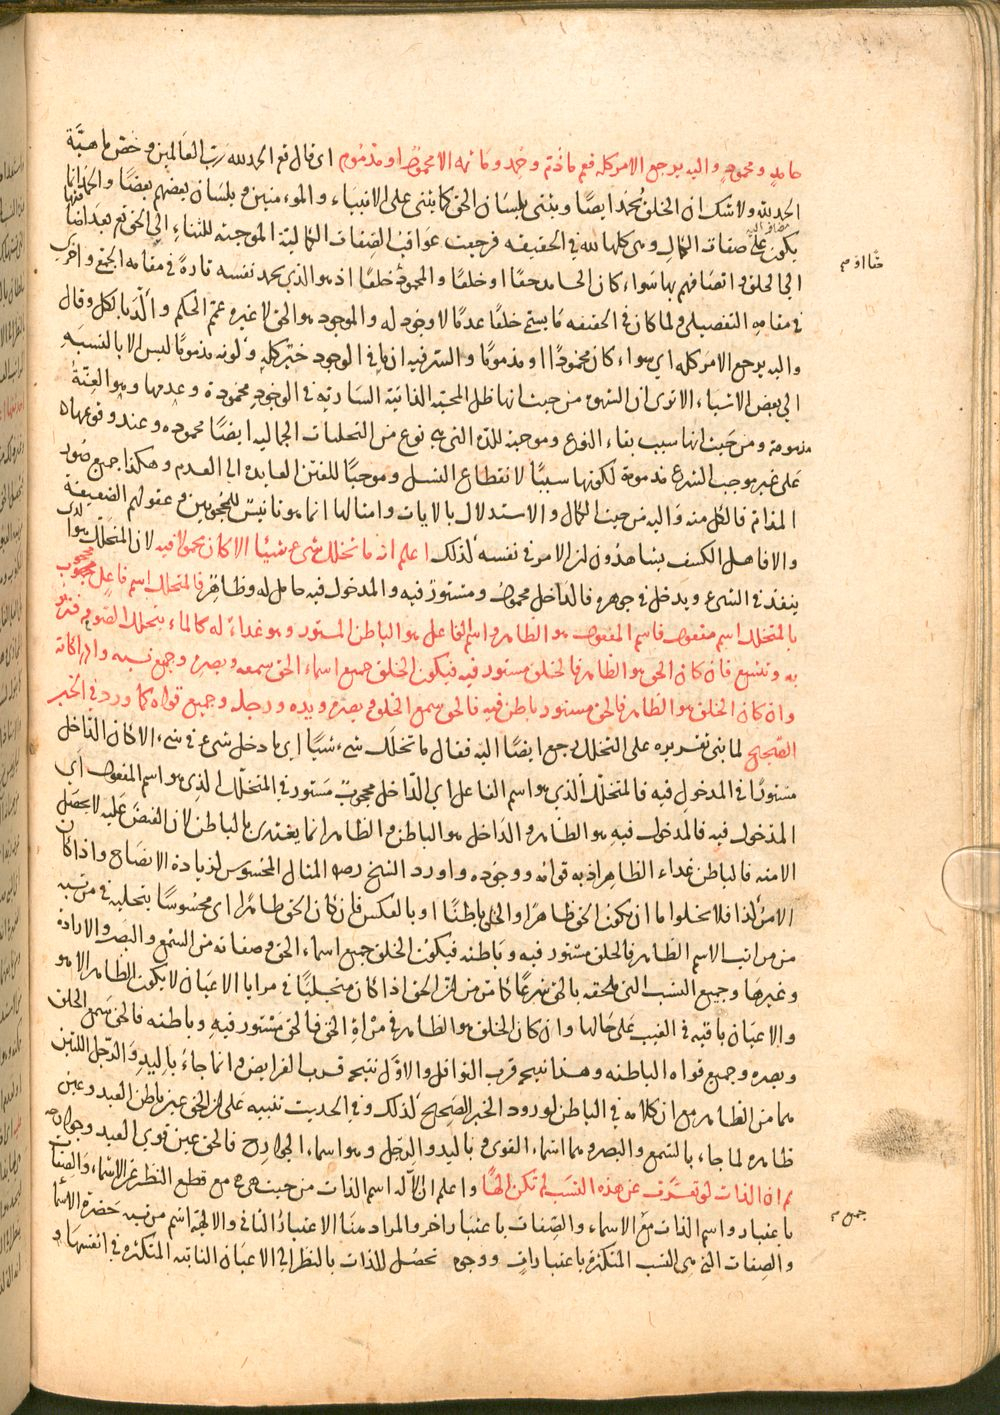 حامد ومحمود واليه يرجع الامر كله فعم ما ذم وحمد وما ثمه الا محمود او مذموم اى قال تع الحمد لله رب العالمين وخص ماهية
الحمد لله ولا شك ان الخلق يحمد ايضا ويثنى بلسان الحق كما يثنى على الانبياء والمومنين وبلسان بعضهم بعضا والحمد انما
يكون على صفات الكمال وهى كلها لله فى الحقيقه فرجعت عواقب الصفات الكمالية الموجبة للثناء الى الحق تع بعد اضافتها
الى الخلق واتصافهم بها سواء كان الحامد حقا او خلقا والمحمود خلقا اذ هو الذى يحمد نفسه تارة فى مقامه الجمعى واخرى
فى مقامه التفصيلى ولما كان فى الحقيقه ما يسمى خلقا عدما لا وجود له والموجود هو الحق لا غيره عمم الحكم والذم بالكل وقال
واليه يرجع الامر كله اى سواء كان محمودا او مذموما والسر فيه ان ما فى الوجود خير كله وكونه مذموما ليس الا بالنسبة
الى بعض الاشياء الا ترى ان الشهوة من حيث انها ظل المحبة الذاتية السارية فى الوجود محمودة وعدمها وهو العنة
مذمومة ومن حيث انها سبب بقاء النوع وموجبة للذة التى هى نوع من التجليات الجماليه ايضا محموده وعند وقوعها
على غير موجب الشرع مذمومة لكونها سببا لانقطاع النسل وموجبا للفتن العايدة الى العدم وهكذا جميع صور
المذام فالكل منه واليه من حيث الكمال والاستدلال بالايات وامثالها انما هو تانيس للمحجوبين فى عقولهم الضعيفة
والا فاهل الكشف يشاهدون ان الامر فى نفسه كذلك اعلم انه ما تخلل شىء شيئا الا كان محمولا فيه لان المتخلل هو الذى
ينفذ فى الشىء ويدخل فى جوهره فالداخل محمول ومستور فيه والمدخول فيه حامل له وظاهر فالمتخلل اسم فاعل محجوب
بالمتخلل اسم مفعول فاسم المفعول هو الظاهر واسم الفاعل هو الباطن المستور وهو غداء له كالماء يتخلل الصوفة فتربو
به وتتسع فان كان الحق هو الظاهر فالخلق مستور فيه فيكون الخلق جميع اسماء الحق سمعه وبصره وجميع نسبه وادراكاته
وان كان الخلق هو الظاهر فالحق مستور باطن فيه فالحق سمع الخلق وبصره ويده ورجله وجميع قواه كما ورد فى الخبر
الصحيح لما بنى تقريره على التخلل رجع ايضا اليه فقال ما تخلل شىء شيئا اى ما دخل شىء فى شىء الا كان الداخل
مستورا فى المدخول فيه فالمتخلل الذى هو اسم الفاعل اى الداخل محجوب مستور فى المتخلل الذى هو اسم المفعول اى
المدخول فيه فالمدخول فيه هو الظاهر والداخل هو الباطن والظاهر انما يغتدى بالباطن لان الفيض عليه لا يحصل
الا منه فالباطن غداء الظاهر اذ به قوامه ووجوده واورد الشيخ رضه المثال المحسوس لزيادة الايضاح واذا كان
الامر كذا فلا يخلوا ما ان يكون الحق ظاهرا والخلق باطنا او بالعكس فان كان الحق ظاهرا اى محسوسا بتجليه فى مرتبة
من مراتب الاسم الظاهر فالخلق مستور فيه وباطنه فيكون الخلق جميع اسماء الحق وصفاته من السمع والبصر والارادة
وغيرها وجميع النسب التى هى ملحقة بالحق شرعا كما مر من ان الحق اذا كان متجليا فى مرايا الاعيان لا يكون الظاهر الا هو
والاعيان باقيه فى الغيب على حالها وان كان الخلق هو الظاهر فى مراة الحق فالحق مستور فيه وباطنه فالحق سمع الخلق
وبصره وجميع قواه الباطنه وهذا نتيجة قرب النوافل والاول نتيجة قرب الفرايض وانما جاء باليد والرجل اللتين
هما من الظاهر مع ان كلامه فى الباطن لورود الخبر الصحيح كذلك وفى الحديث تنبيه على ان الحق عين باطن العبد وعين
ظاهره لما جاء بالسمع والبصر وهما اسماء القوى وباليد والرجل وهو اسماء الجوارح فالحق عين قوى العبد وجوارحه
ثم ان الذات لو تعرت عن هذه النسب لم تكن الها واعلم ان الاله اسم الذات من حيث هى هى مع قطع النظر عن الاسماء والصفات
باعتبار واسم الذات مع الاسماء والصفات باعتبار اخر والمراد هنا الاعتبار الثانى والالهية اسم مرتبة حضرة الاسماء
والصفات التى هى النسب المتكثرة باعتبارات ووجوه تحصل للذات بالنظر الى الاعيان الثابتة المتكثرة فى انفسها و